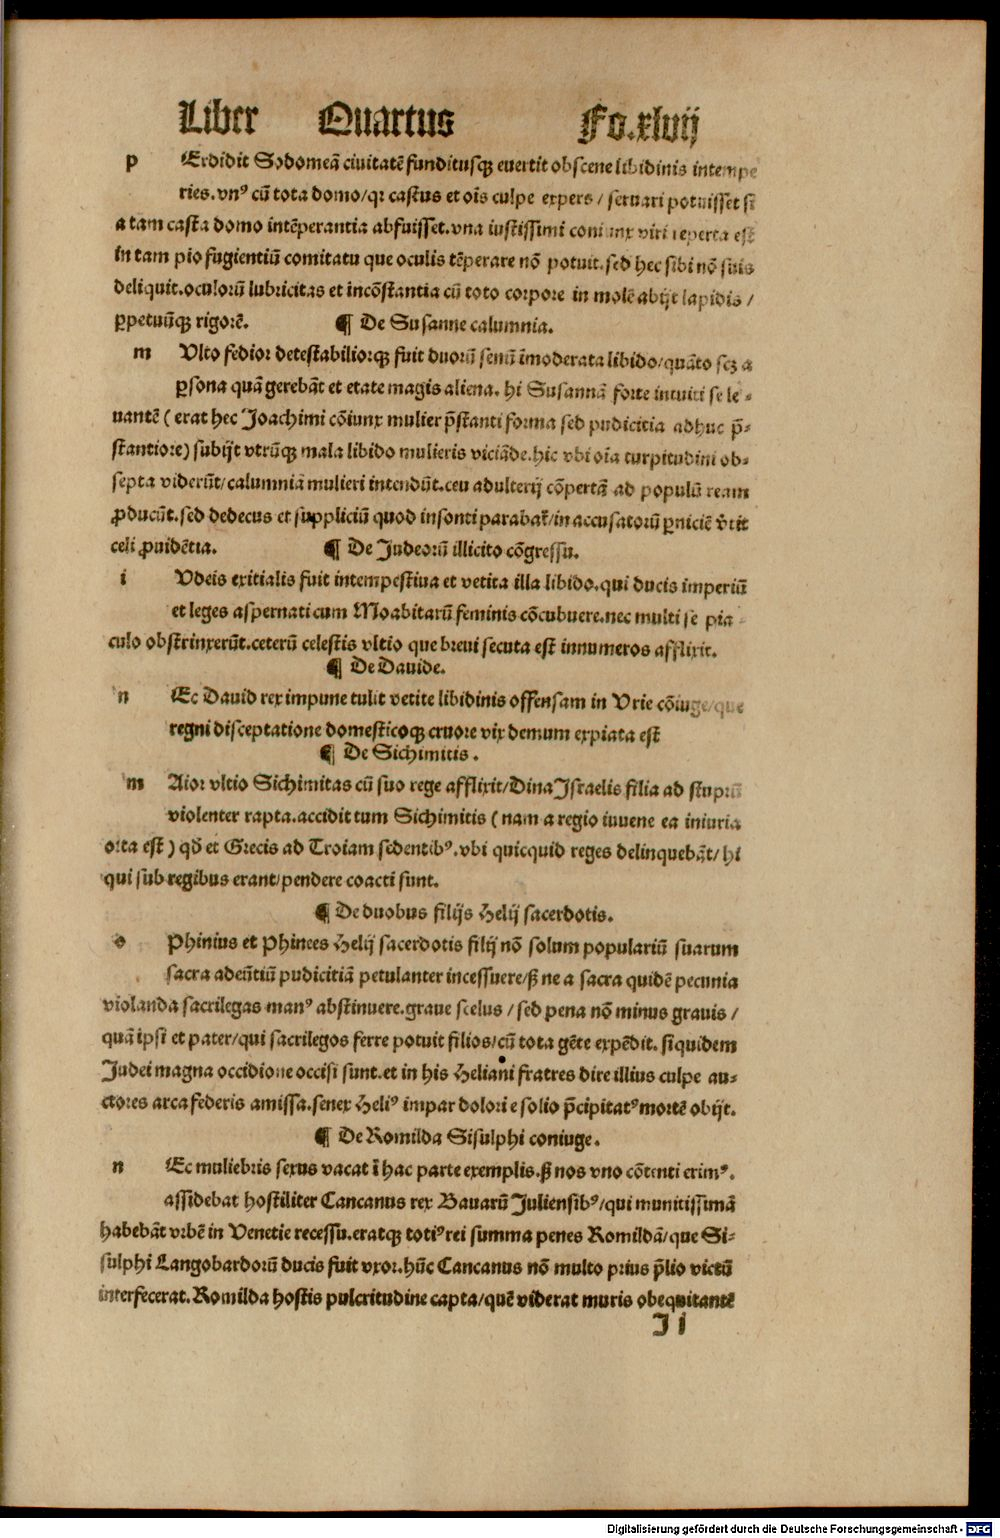 Liber Quartus Fo.xlvij
p Erdidit Sodomeā ciuitatē funditusqꝫ euertit obscene libidinis intempe
ries.vnꝰ cū tota domo/qꝛ castus et oīs culpe expers/ seruari potuisset si
a tam casta domo intēperantia abfuisset.vna iustissimi coniunx viri reperta est
in tam pio fugientiū comitatu que oculis tēperare nō potuit.sed hec sibi nō suis
deliquit.oculorū lubricitas et incōstantia cū toto corpore in molē abijt lapidis/
ꝑpetuūqꝫ rigorē. ¶ De Susanne calumnia.
m Vlto fedior detestabiliorqꝫ fuit duorū senū īmoderata libido/quāto scꝫ a
ꝑsona quā gerebāt et etate magis aliena. hi Susannā forte intuiti se le-
uantē (erat hec Joachimi cōiunx mulier p̄stanti forma sed pudicitia adhuc p̄-
stantiore) subijt vtrūqꝫ mala libido mulieris viciāde.hic vbi oīa turpitudini ob-
septa viderūt/calumniā mulieri intendūt.ceu adulterij cōpertā ad populū ream
ꝓducūt.sed dedecus et suppliciū quod insonti parabat̄/in accusatorū ꝑniciē v̄tit
celi ꝓuidētia. ¶ De Judeorū illicito cōgressu.
i Vdeis exitialis fuit intempestiua et vetita illa libido.qui ducis imperiū
et leges aspernati cum Moabitarū feminis cōcubuere.nec multi se pia-
culo obstrinxerūt.ceterū celestis vltio que breui secuta est innumeros afflixit.
¶ De Dauide.
n Ec Dauid rex impune tulit vetite libidinis offensam in Vrie cōiuge/que
regni disceptatione domesticoqꝫ cruore vix demum expiata est
¶ De Sichimitis.
m Aior vltio Sichimitas cū suo rege afflixit/Dina Israelis filia ad stuprū
violenter rapta.accidit tum Sichimitis (nam a regio iuuene ea iniuria
orta est) qď et Grecis ad Troiam sedentibꝰ.vbi quicquid reges delinquebāt/hi
qui sub regibus erant/pendere coacti sunt.
¶ De duobus filijs Helij sacerdotis.
o Phinius et Phinees Helij sacerdotis filij nō solum populariū suarum
sacra adeūtiū pudicitiā petulanter incessuere/ß ne a sacra quidē pecunia
violanda sacrilegas manꝰ abstinuere.graue scelus/sed pena nō minus grauis/
quā ipsi et pater/qui sacrilegos ferre potuit filios/cū tota gēte expēdit. siquidem
Judei magna occidione occisi sunt.et in his Heliani fratres dire illius culpe au-
ctores arca federis amissa.senex Heliꝰ impar dolori e solio p̄cipitatꝰ mortē obijt.
¶ De Romilda Sisulphi coniuge.
n Ec muliebris sexus vacat ī hac parte exemplis.ß nos vno cōtenti erimꝰ.
assidebat hostiliter Cancanus rex Bauarū Juliensibꝰ/qui munitissimā
habebāt vrbē in Venetie recessu.eratqꝫ totiꝰ rei summa penes Romildā/que Si-
sulphi Langobardorū ducis fuit vxor.hūc Cancanus nō multo prius p̄lio victū
interfecerat.Romilda hostis pulcritudine capta/quē viderat muris obequitantē
I i
Digitalisierung gefördert durch die Deutsche Forschungsgemeinschaft - DFG